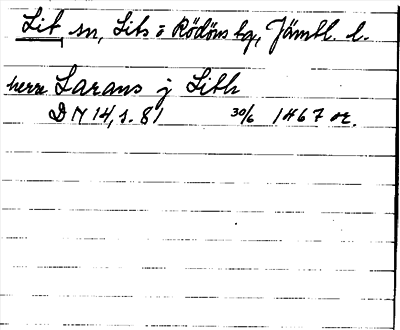 Lit sn, Lits o Rödöns tg, Jämtl. l.
herra Larans j Lith
DN 14, s. 81 30/6 1467 or.